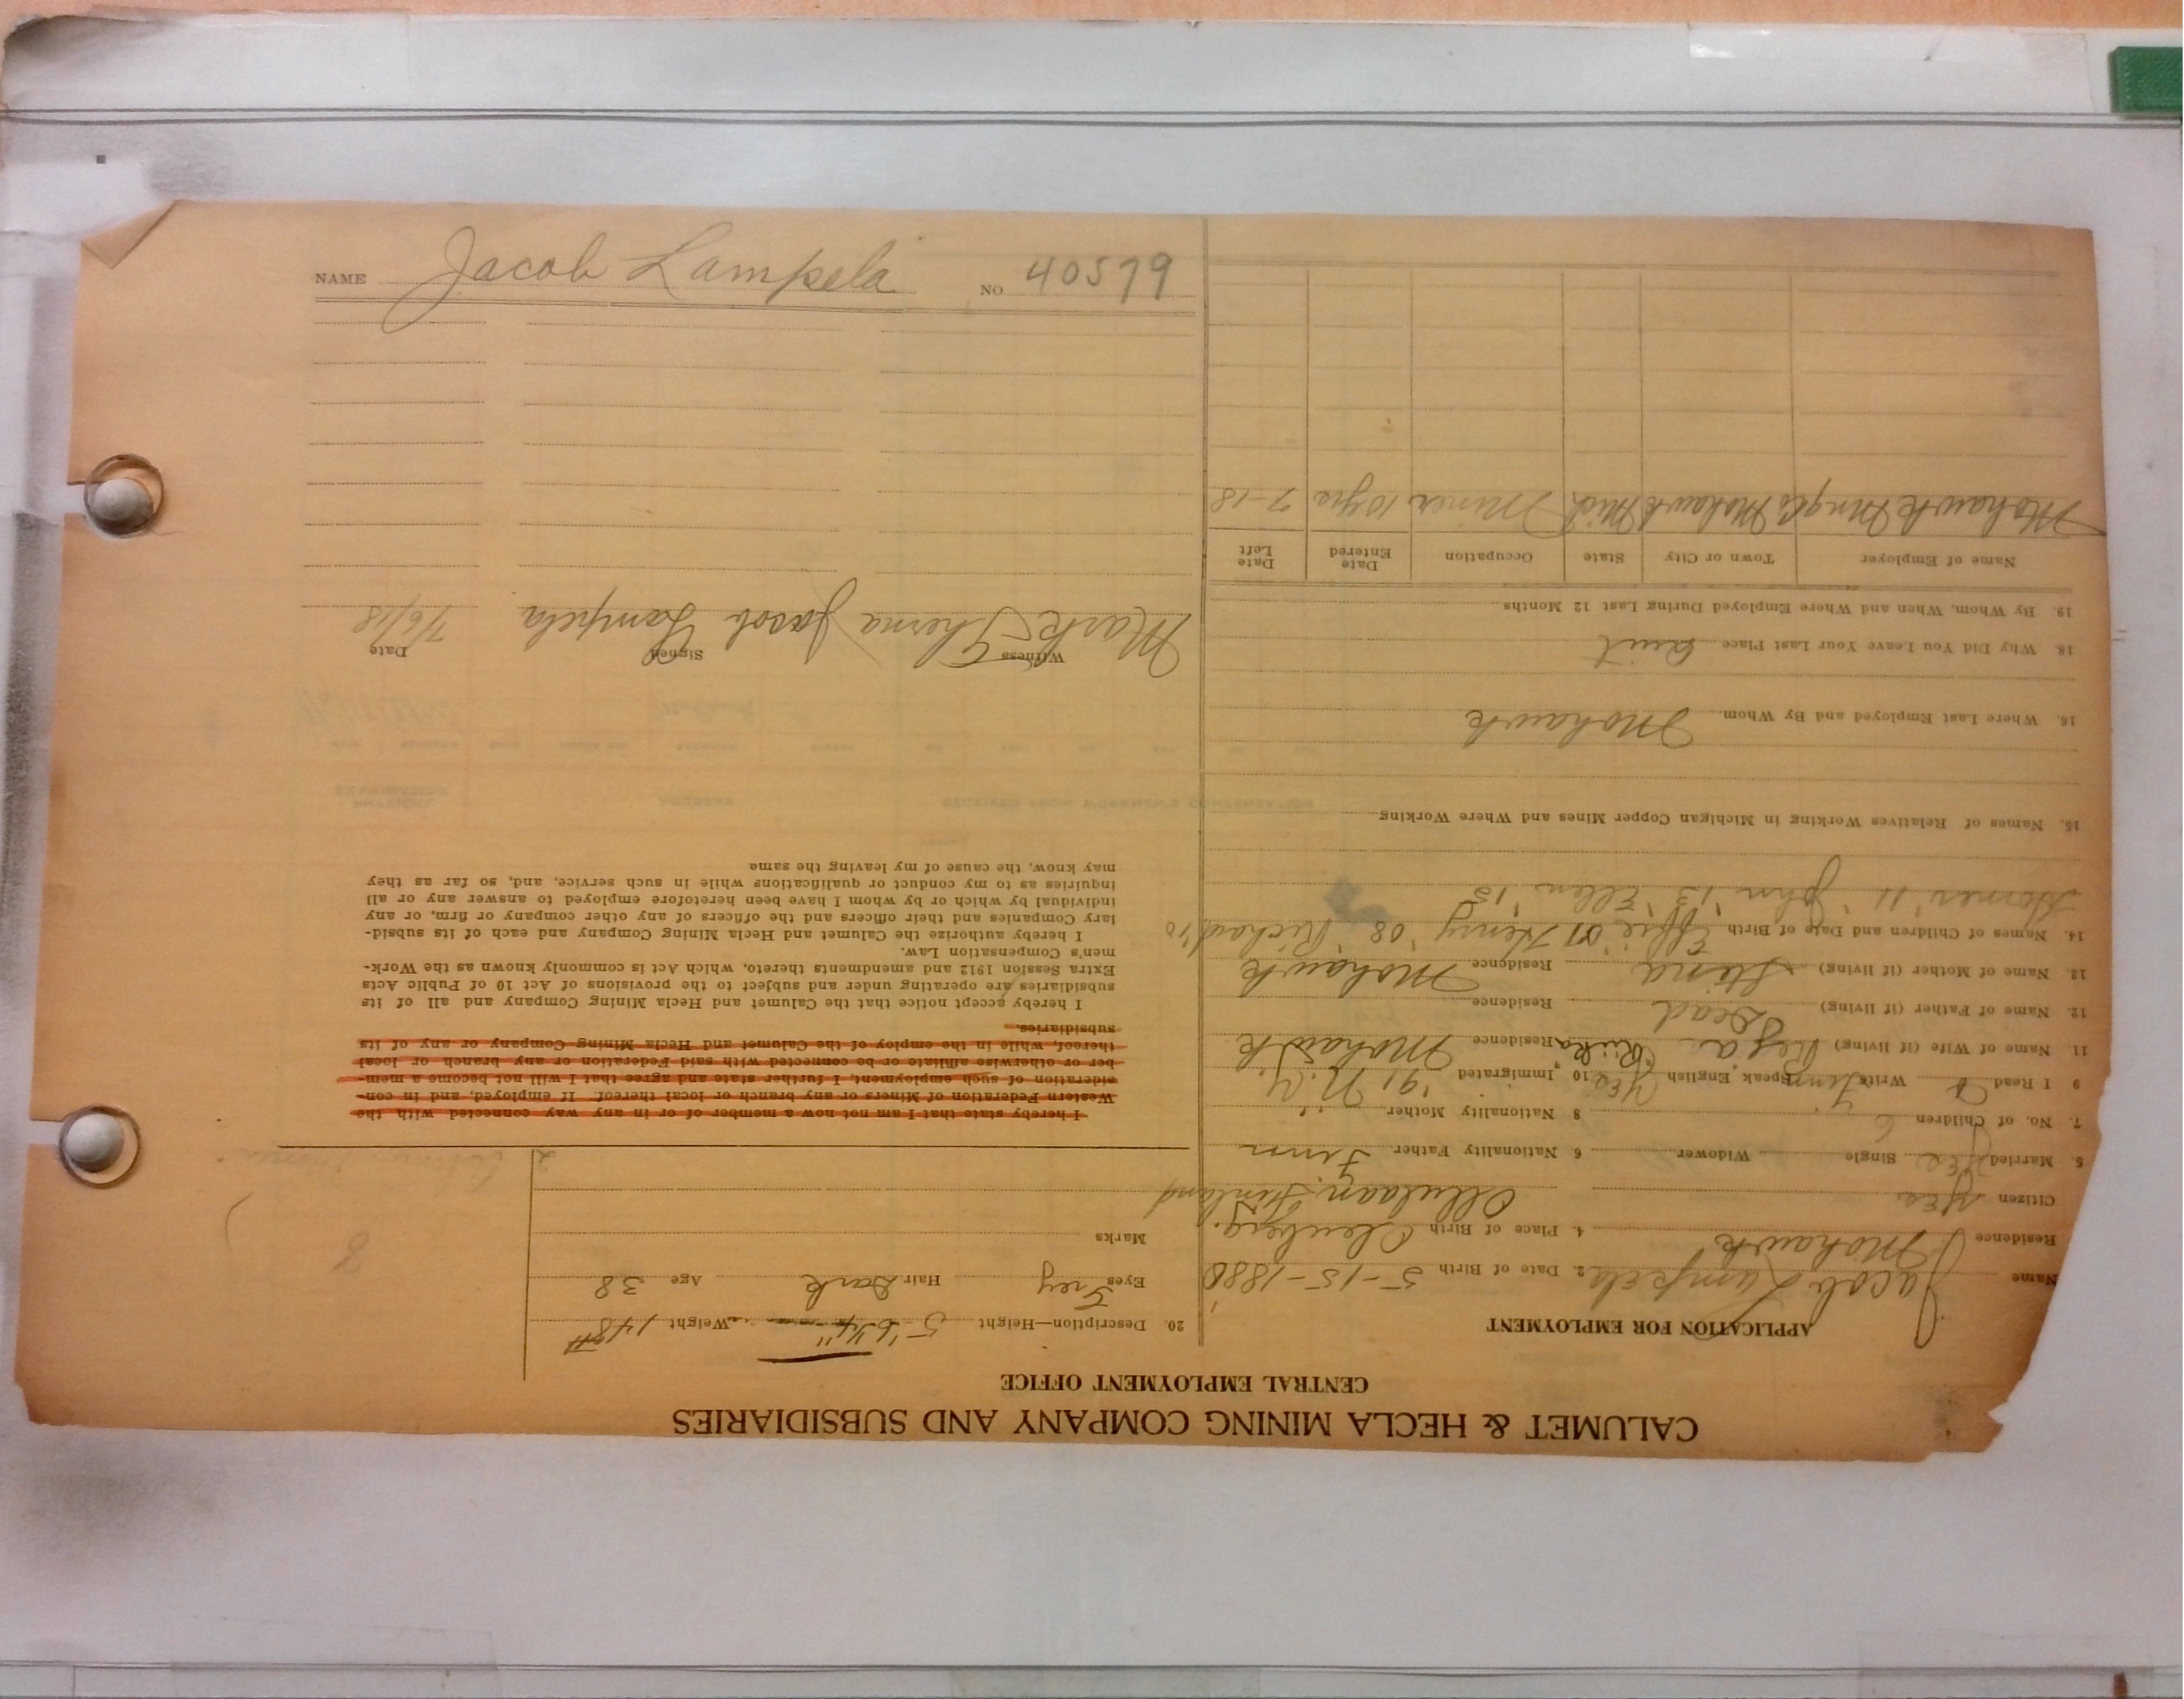 CALUMET & HECLA MINING COMPANY AND SUBSIDIARIES
CENTRAL EMPLOYMENT OFFICE
APPLICATION FOR EMPLOYMENT
Name Jacob Lampela 2. Date of Birth 5-15-1880
Residence Mohawk 4. Place of Birth
Citizen Yes Finland
5. Married Yes Single Widower 6 Nationality Father Finn
7. No. of Children 6 8 Nationality Mother "
9 I Read & Write Finn Speak English Yes 10 Immigrated '91 N.Y.
11 Name of Wife (if living) Riika Residence Mohawk
12. Name of Father (if living) Dead Residence
13. Name of Mother (if living) Stina Residence Mohawk
14. Names of Children and Date of Birth Effie '07 Henry '08 Richard '10
Homer '11 John '13 Ellen '15
15. Names of Relatives Working in Michigan Copper Mines and Where Working
16. Where Last Employed and By Whom Mohawk
18. Why Did You Leave Your Last Place Quit
19. By Whom, When and Where Employed During Last 12 Months
Name of Employer Town or City State Occupation Date Entered Date Left
Mohawk Mng Co. Mohawk Mich Miner 10 yrs 7-18
20. Description—Height 5-6 1/4" Weight 148#
Eyes Grey Hair Dark Age 38
Marks
I hereby state that I am not now a member of or in any way connected with the
Western Federation of Miners or any branch or local thereof. If employed, and in con-
sideration of such employment, I further state and agree that I will not become a mem-
ber or otherwise affiliate or be connected with said Federation or any branch or local
thereof, while in the employ of the Calumet and Hecla Mining Company or any of its
subsidiaries.
I hereby accept notice that the Calumet and Hecla Mining Company and all of its
subsidiaries are operating under and subject to the provisions of Act 10 of Public Acts
Extra Session 1912 and amendments thereto, which Act is commonly known as the Work-
men's Compensation Law.
I hereby authorize the Calumet and Hecla Mining Company and each of its subsid-
iary Companies and their officers and the officers of any other company or firm, or any
individual by which or by whom I have been heretofore employed to answer any or all
inquiries as to my conduct or qualifications while in such service, and, so far as they
may know, the cause of my leaving the same
Witness Signed Date
Mark Therma Jacob Lampela 7/6/18
NAME Jacob Lampela NO 40579